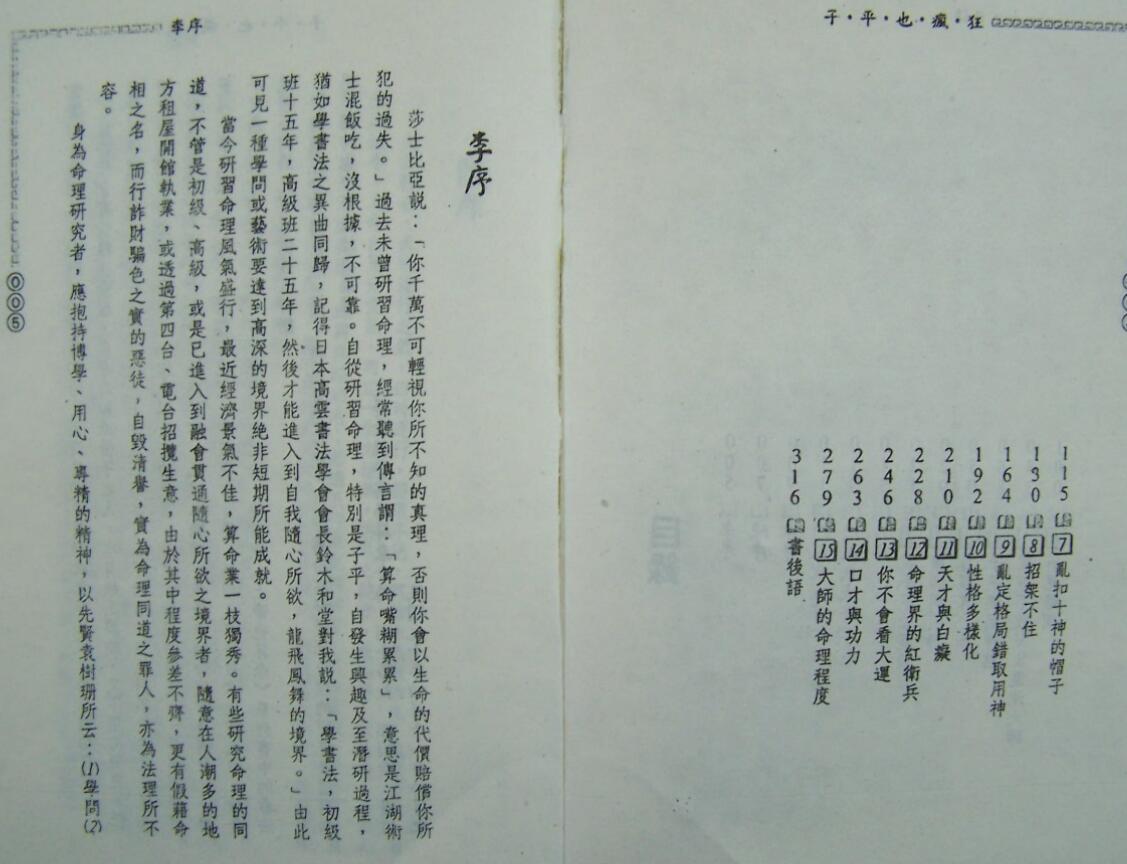 子·平·也·瘋·狂
115 7 亂扣十神的帽子
130 8 招架不住
164 9 亂定格局錯取用神
192 10 性格多樣化
210 11 天才與白癡
228 12 命理界的紅衛兵
246 13 你不會看大運
263 14 口才與功力
279 15 大師的命理程度
316 書後語
李序
李序
莎士比亞說：「你千萬不可輕視你所不知的真理，否則你會以生命的代價賠償你所
犯的過失。」過去未曾研習命理，經常聽到傳言謂：「算命嘴糊累累」，意思是江湖術
士混飯吃，沒根據，不可靠。自從研習命理，特別是子平，自發生興趣及至潛研過程，
猶如學書法之異曲同歸，記得日本高雲書法學會會長鈴木和堂對我說：「學書法，初級
班十五年，高級班二十五年，然後才能進入到自我隨心所欲，龍飛鳳舞的境界。」由此
可見一種學問或藝術要達到高深的境界絕非短期所能成就。
當今研習命理風氣盛行，最近經濟景氣不佳，算命業一枝獨秀。有些研究命理的同
道，不管是初級、高級，或是已進入到融會貫通隨心所欲之境界者，隨意在人潮多的地
方租屋開館執業，或透過第四台、電台招攬生意，由於其中程度參差不齊，更有假藉命
相之名，而行詐財騙色之實的惡徒，自毀清譽，實為命理同道之罪人，亦為法理所不
容。
身為命理研究者，應抱持博學、用心、專精的精神，以先賢袁樹珊所云：(1)學問(2)
005